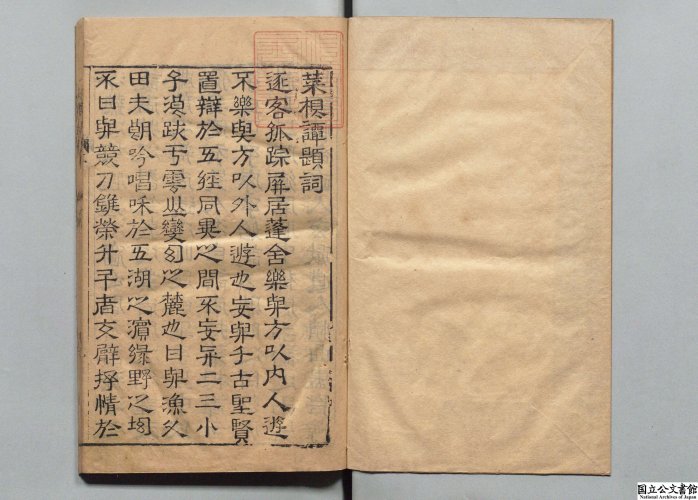 菜根譚題詞
逐客孤踪屏居蓬舍樂與方以內人遊
不樂與方以外人遊也妄與千古聖賢
置辯於五經同異之間不妄與二三小
子浪跡于雲山變幻之麓也日與漁父
田夫朗吟唱和於五湖之濱綠野之坳
不日與競刀錐榮升斗者交臂抒情於
国立公文書館
National Archives of Japan